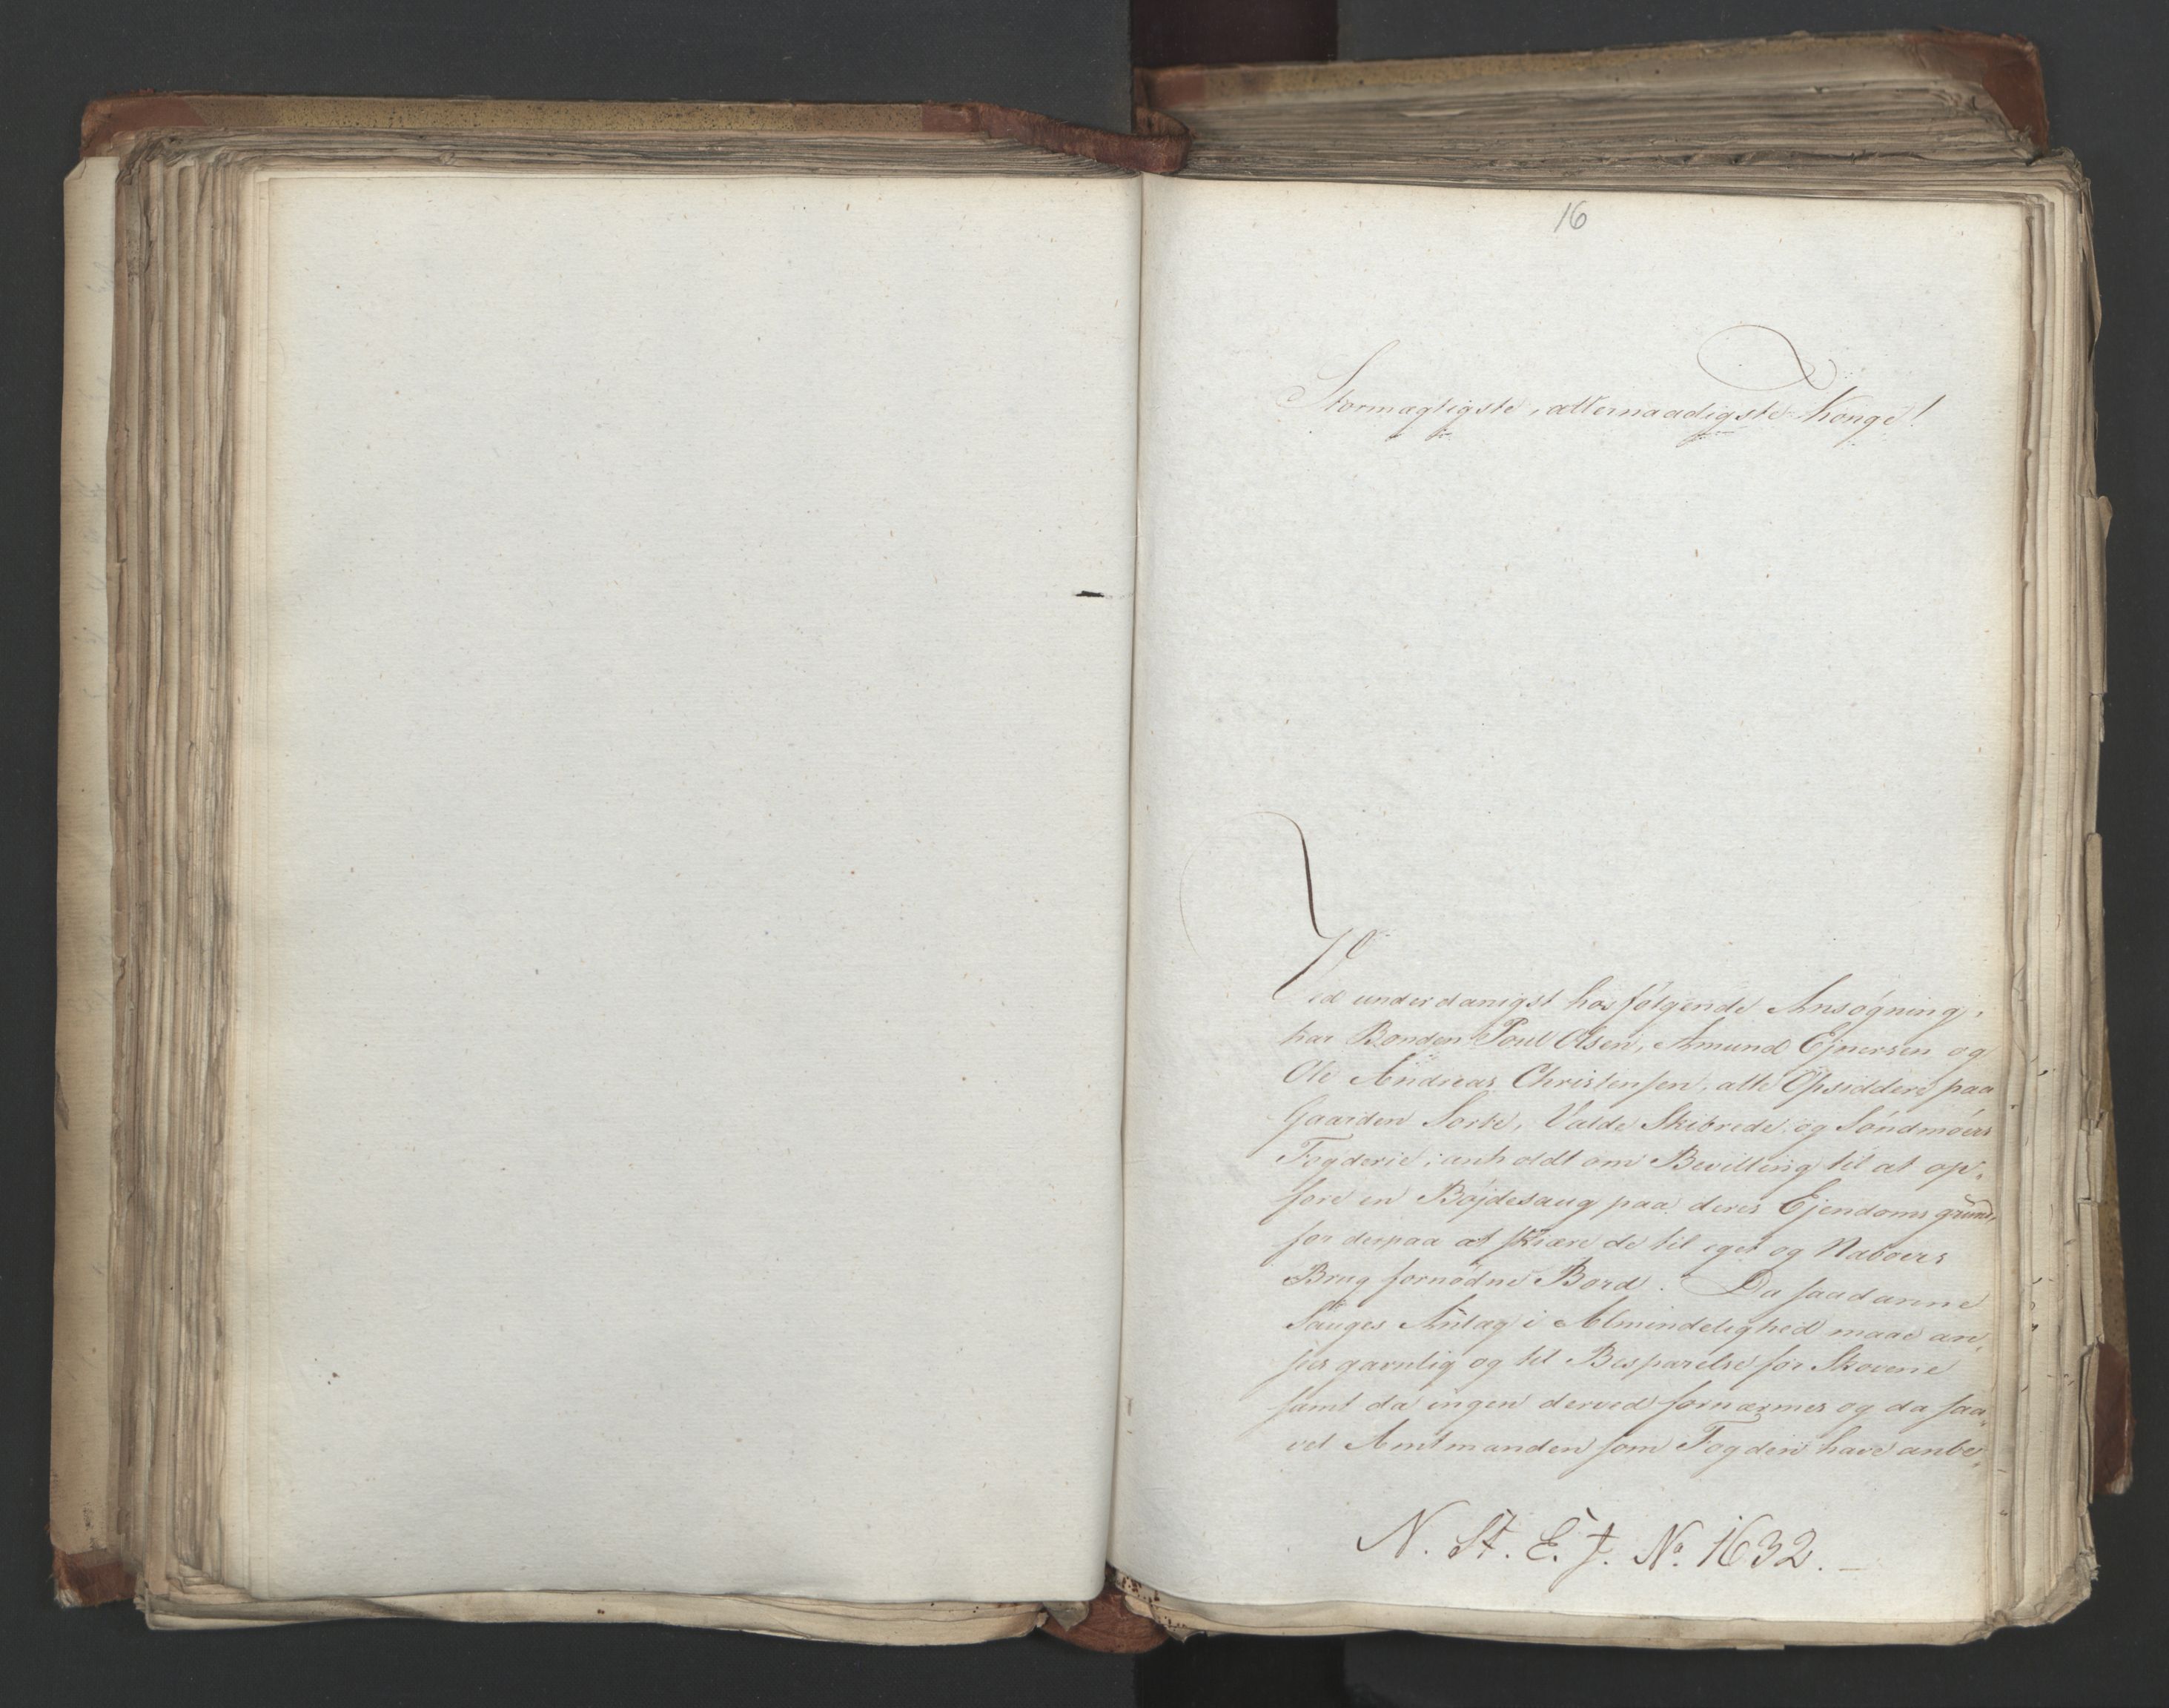 16
Stormægtigste, allernaadigste Konge!
Ved underdanigst hosfølgende Ansøgning,
har Bonden Poul Olsen, Amund Ejnersen og
Ole Andreas Christensen, alle Opsiddere paa
Gaarden Sorte, Valde Skibrede og Søndmøers
Fogderie, anholdt om Bevilling til at op-
føre en Bøjdesaug paa deres Ejendoms grund,
for derpaa at skiære de til eget og Naboers
Brug fornødne Bord. Da saadanne
Sauges Anlæg i Almindelighed maae an-
sees gavnlig og til Besparelse for Skovene
samt da ingen derved fornærmes og da saa-
vel Amtmanden som Fogden have anbe-
N. St. E. J. No. 1632.